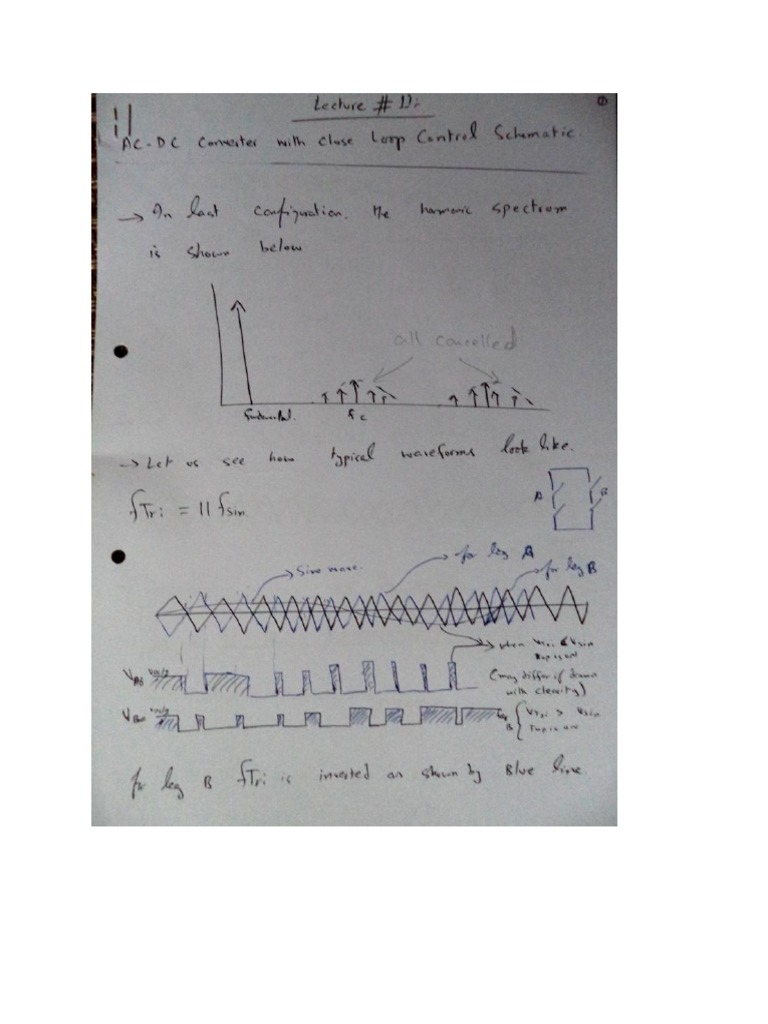 Lecture # 12:
11
AC-DC Converter with Close Loop Control Schematic.
→ In last configuration. the harmonic spectrum
is shown below
all cancelled
Fundamental.
fc
→ Let us see how typical waveforms look like.
fTri = 11 fsin.
A
B
Sine wave.
for leg A
for leg B
when VTri < Vsin
Top is on
(may differ if drawn
with clearity)
VAo
VBo
for B { VTri > Vsin
Top is on
for leg B fTri is inverted as shown by Blue line.